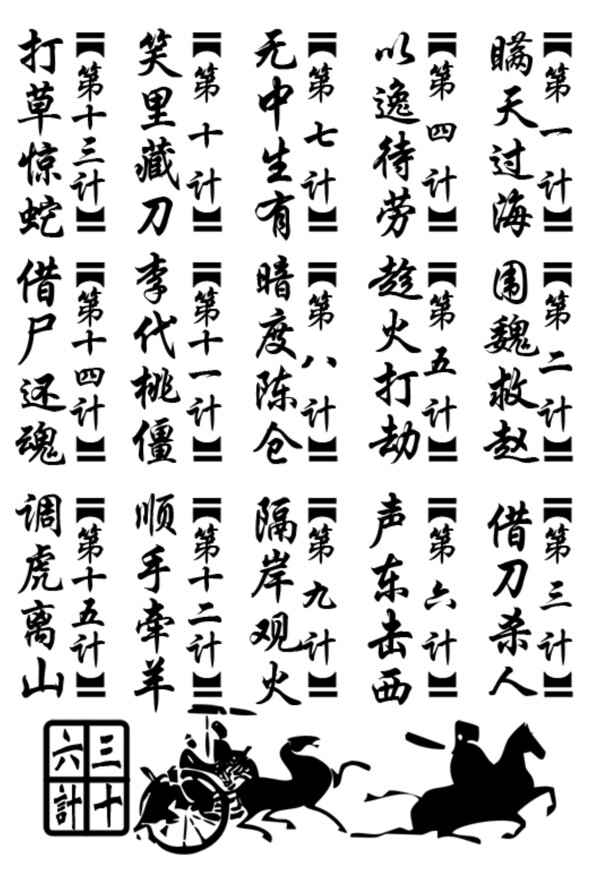 第一计
瞒天过海
第二计
围魏救赵
第三计
借刀杀人
第四计
以逸待劳
第五计
趁火打劫
第六计
声东击西
第七计
无中生有
第八计
暗度陈仓
第九计
隔岸观火
第十计
笑里藏刀
第十一计
李代桃僵
第十二计
顺手牵羊
第十三计
打草惊蛇
第十四计
借尸还魂
第十五计
调虎离山
三十
六計